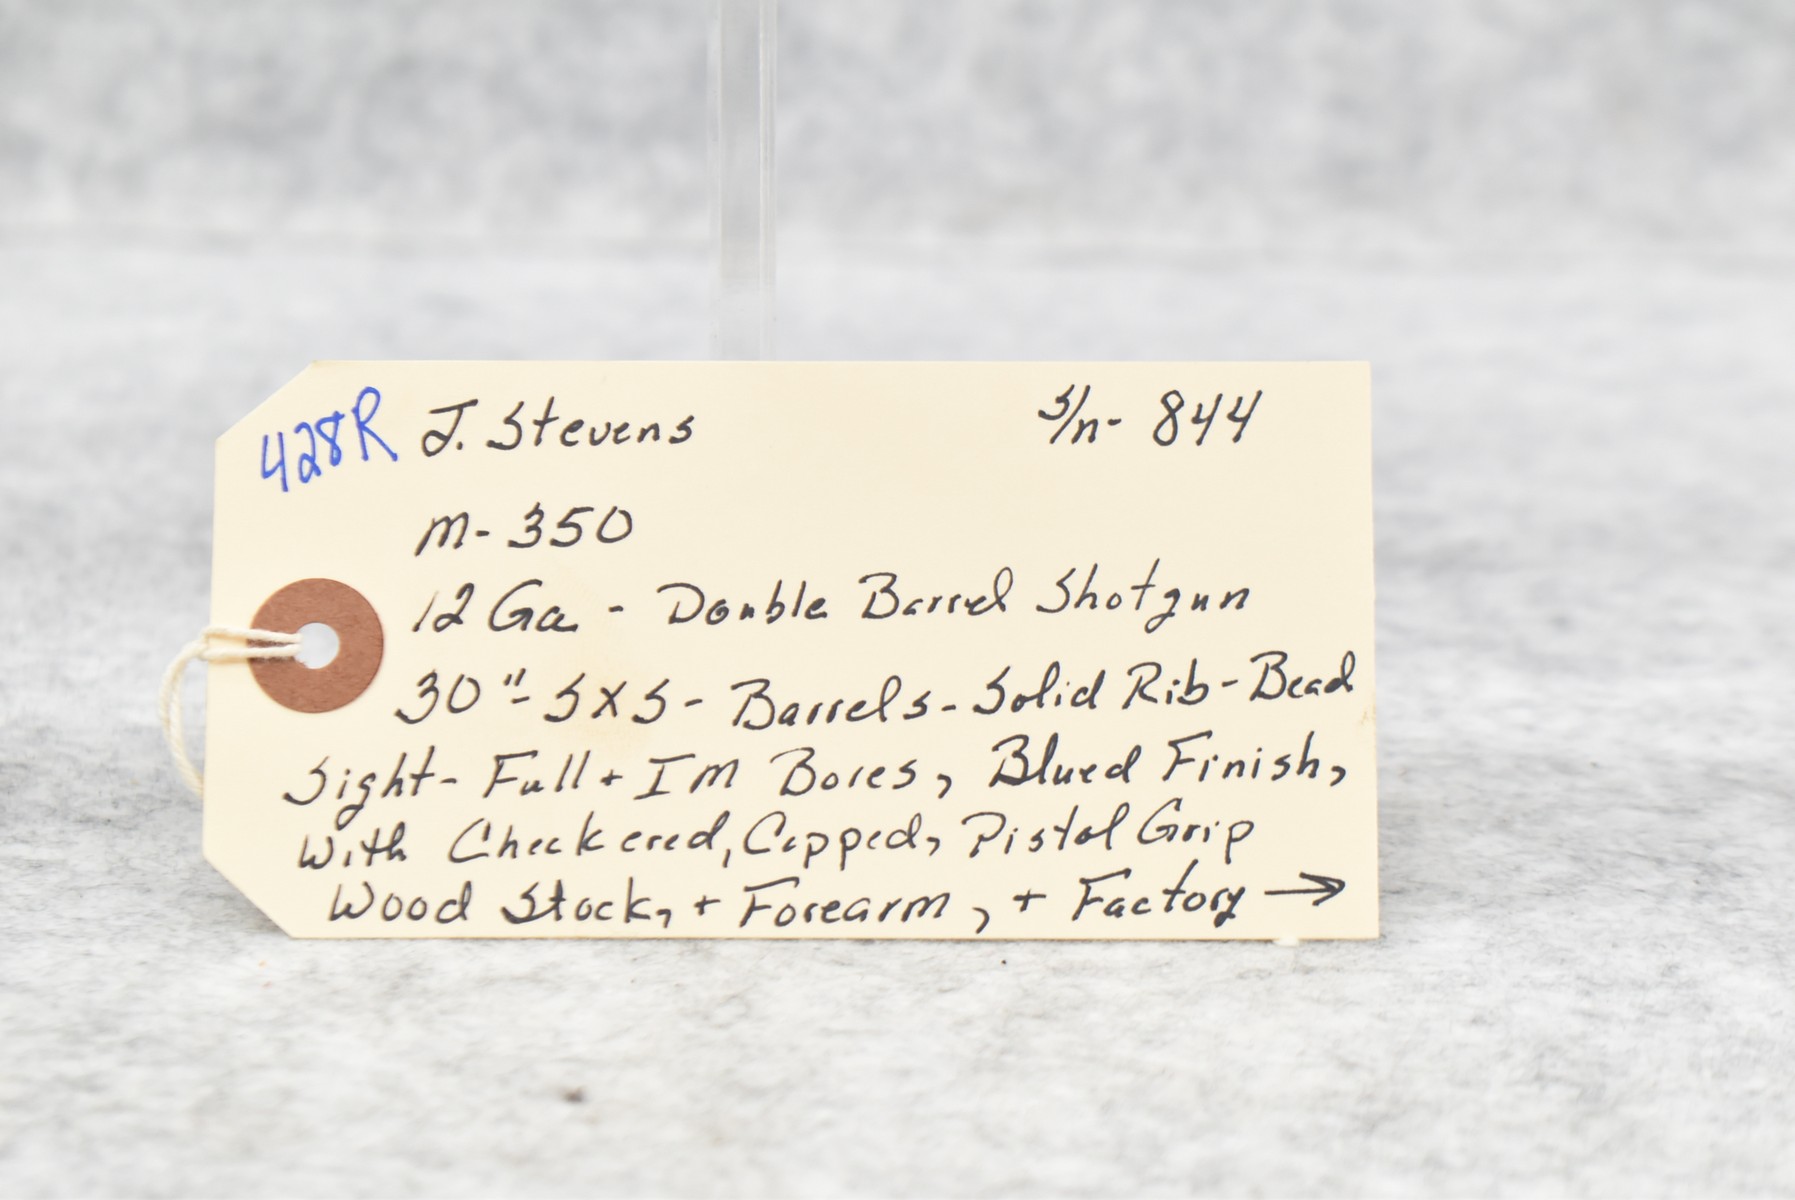 428R J. Stevens S/n- 844
M- 350
12 Ga - Double Barrel Shotgun
30"- SXS- Barrels- Solid Rib- Bead
Sight- Full + IM Bores, Blued Finish,
With Checkered, Capped, Pistol Grip
Wood Stock, + Forearm, + Factory →